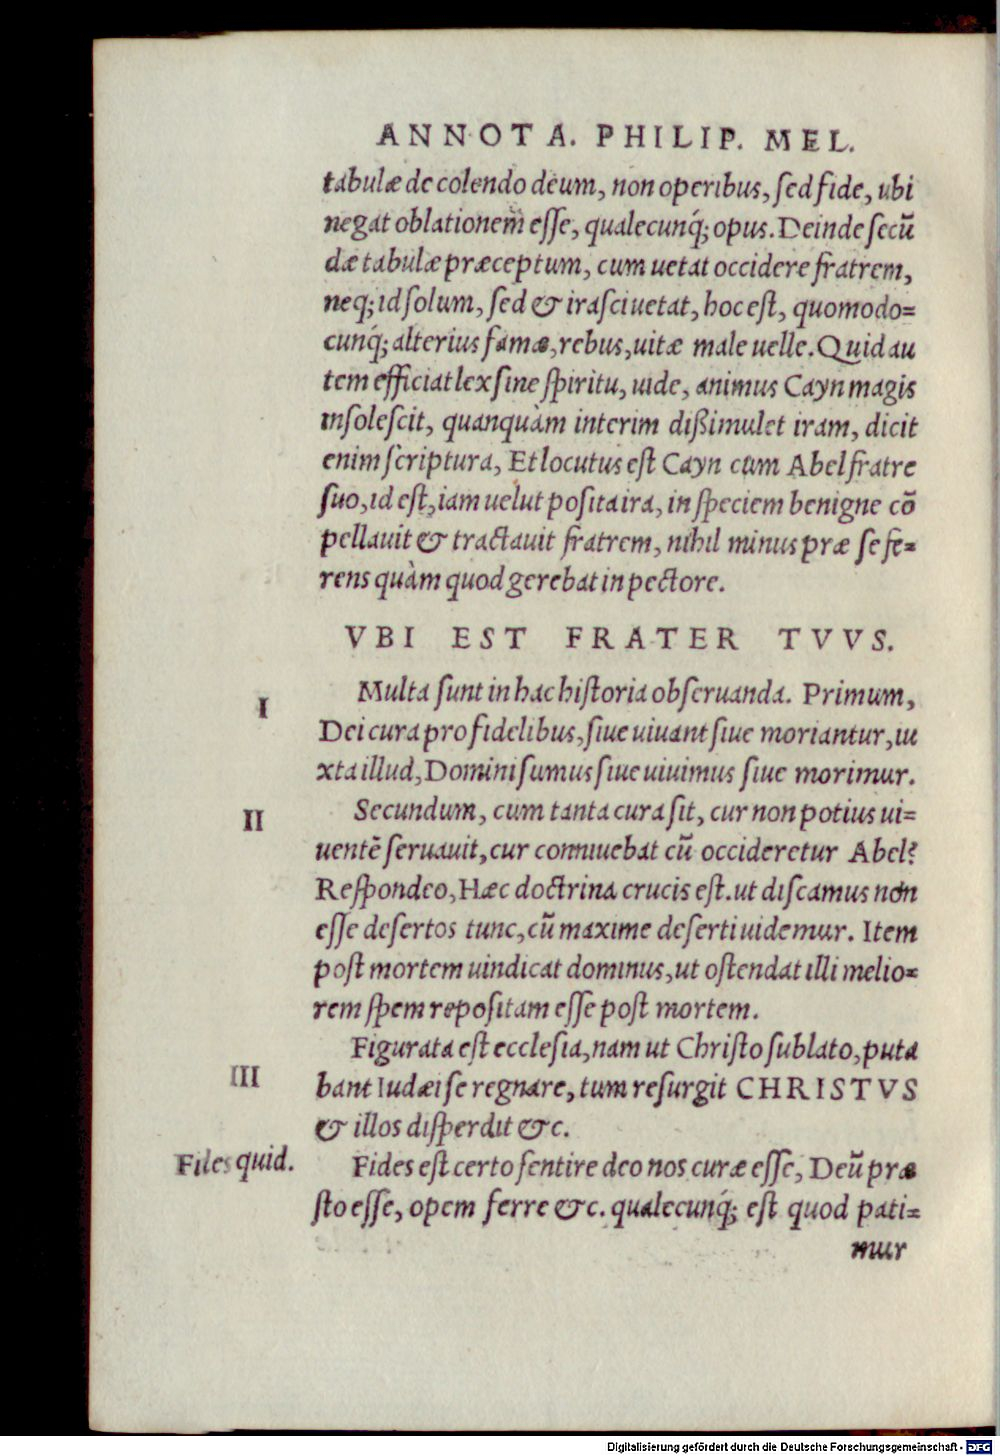 ANNOTA. PHILIP. MEL.
tabulæ de colendo deum, non operibus, sed fide, ubi
negat oblationem esse, qualecunq́; opus. Deinde secū
dæ tabulæ præceptum, cum uetat occidere fratrem,
neq; id solum, sed & irasci uetat, hoc est, quomodo=
cunq́; alterius famæ, rebus, uitæ male uelle. Quid au
tem efficiat lex sine spiritu, uide, animus Cayn magis
insolescit, quanquàm interim dißimulet iram, dicit
enim scriptura, Et locutus est Cayn cum Abel fratre
suo, id est, iam uelut posita ira, in speciem benigne cō
pellauit & tractauit fratrem, nihil minus præ se fe=
rens quàm quod gerebat in pectore.
VBI EST FRATER TVVS.
I
Multa sunt in hac historia obseruanda. Primum,
Dei cura pro fidelibus, siue uiuant siue moriantur, iu
xta illud, Domini sumus siue uiuimus siue morimur.
II
Secundum, cum tanta cura sit, cur non potius ui=
uentē seruauit, cur conniuebat cū occideretur Abel?
Respondeo, Hæc doctrina crucis est. ut discamus non
esse desertos tunc, cū maxime deserti uidemur. Item
post mortem uindicat dominus, ut ostendat illi melio=
rem spem repositam esse post mortem.
III
Figurata est ecclesia, nam ut Christo sublato, puta
bant Iudæi se regnare, tum resurgit CHRISTVS
& illos disperdit &c.
Fides quid.
Fides est certo sentire deo nos curæ esse, Deū præ
sto esse, opem ferre &c. qualecunq́; est quod pati=
mur
Digitalisierung gefördert durch die Deutsche Forschungsgemeinschaft - DFG